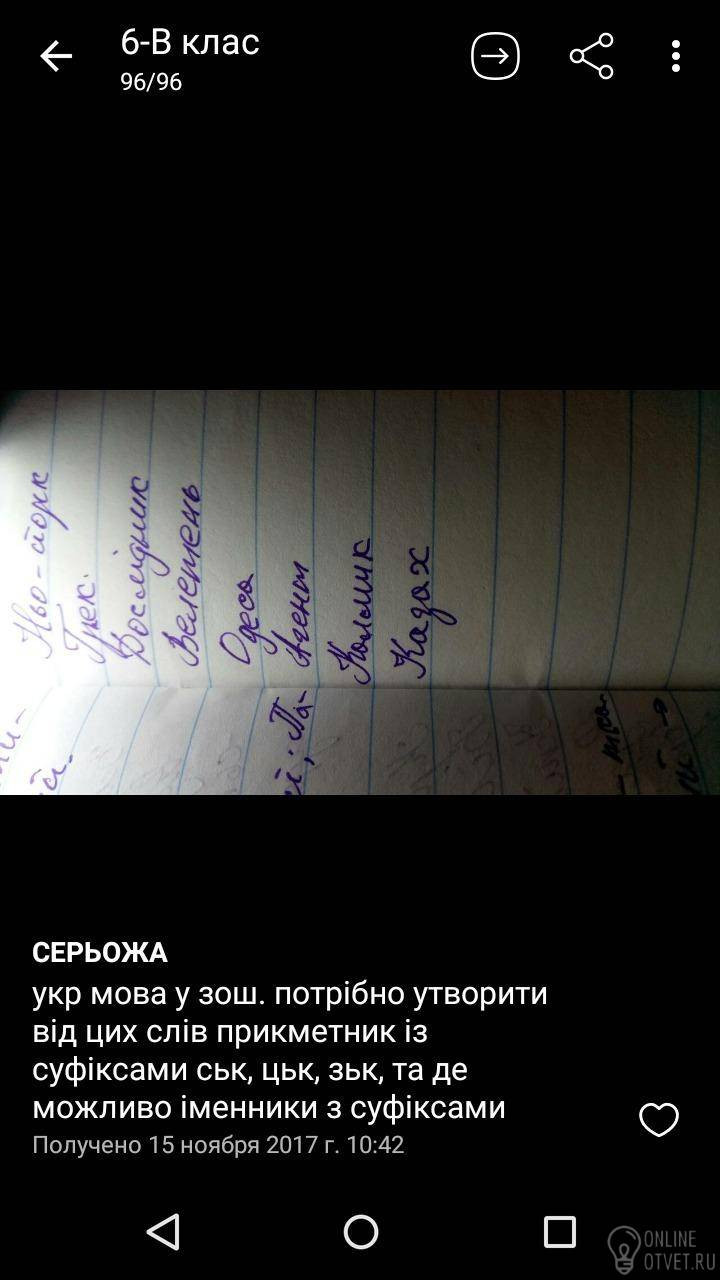 6-В клас
96/96
Нью-йорк
Грек.
Дослідник
Велетень
Одеса
Агент
Калмик
Казах
СЕРЬОЖА
укр мова у зош. потрібно утворити
від цих слів прикметник із
суфіксами ськ, цьк, зьк, та де
можливо іменники з суфіксами
Получено 15 ноября 2017 г. 10:42
ONLINE
OTVET.RU